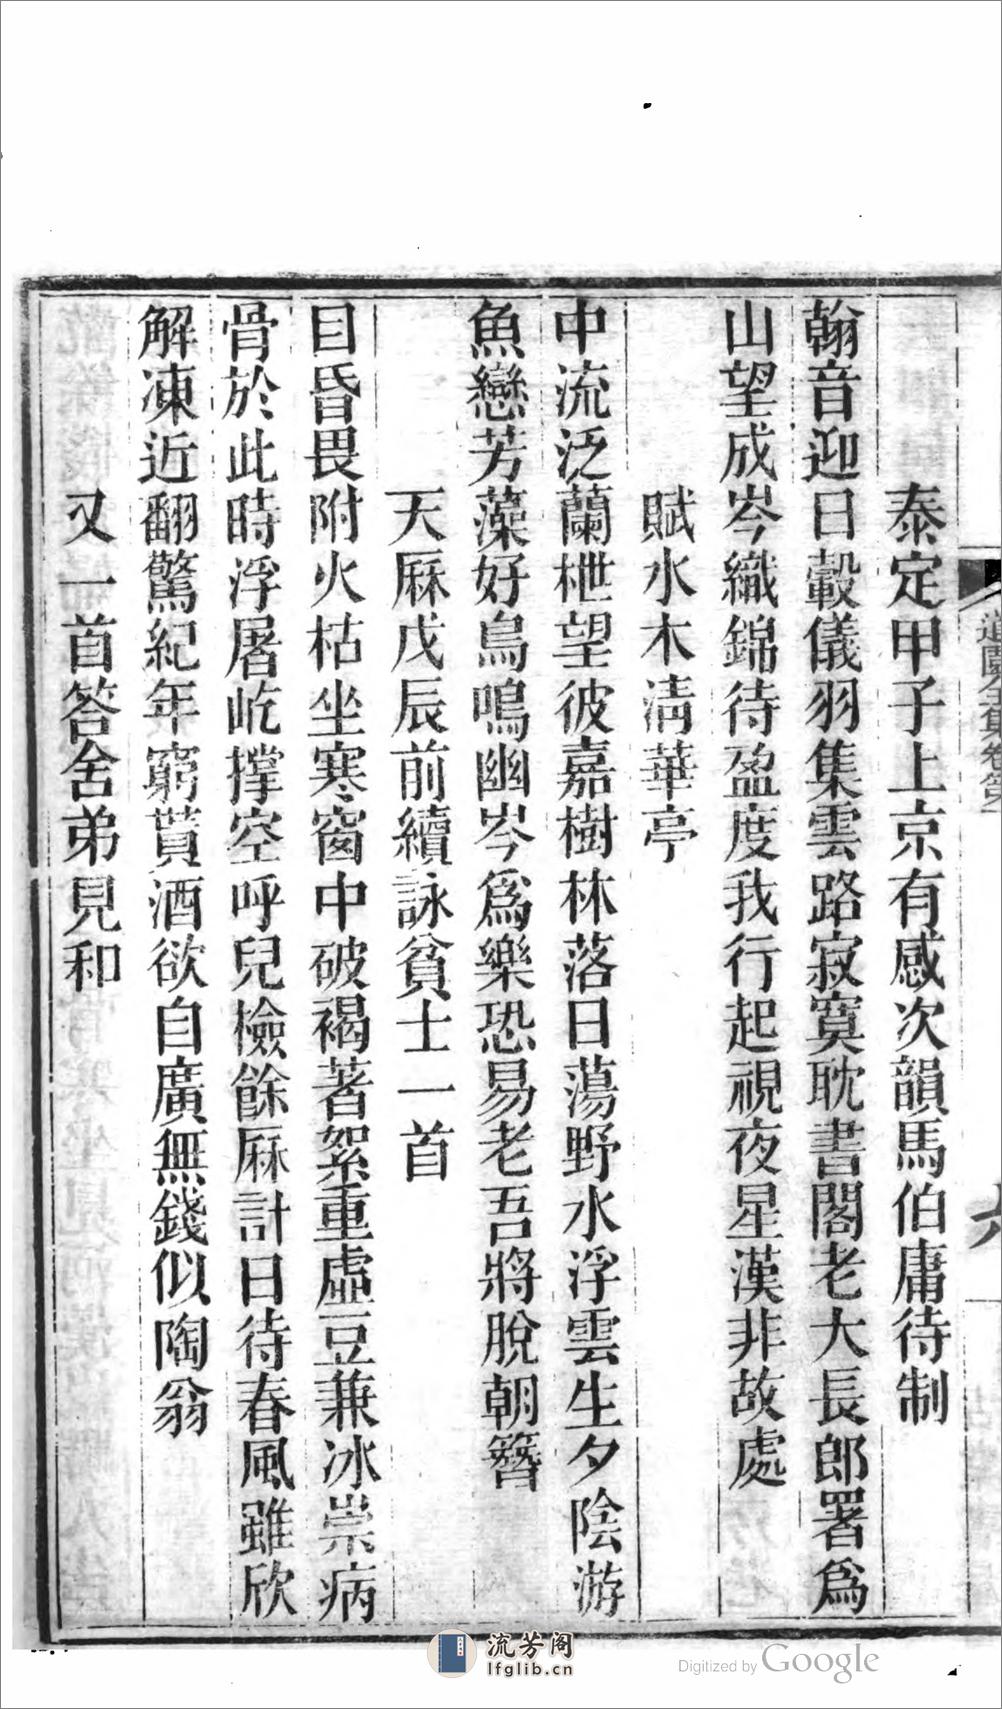 泰定甲子上京有感次韻馬伯庸待制
翰音迎日轂儀羽集雲路寂寞耽書閣老大長郎署爲
山望成岑織錦待盈度我行起視夜星漢非故處
賦水木清華亭
中流泛蘭枻望彼嘉樹林落日蕩野水浮雲生夕陰游
魚戀芳藻好鳥鳴幽岑爲樂恐易老吾將脫朝簪
天厤戊辰前續詠貧士一首
目昏畏附火枯坐寒窗中破褐著絮重虛豆兼冰崇病
骨於此時浮屠屹撑空呼兒檢餘厤計日待春風雖欣
解凍近翻驚紀年窮貰酒欲自廣無錢似陶翁
又一首答舍弟見和
流芳阁
lfglib.cn
Digitized by Google